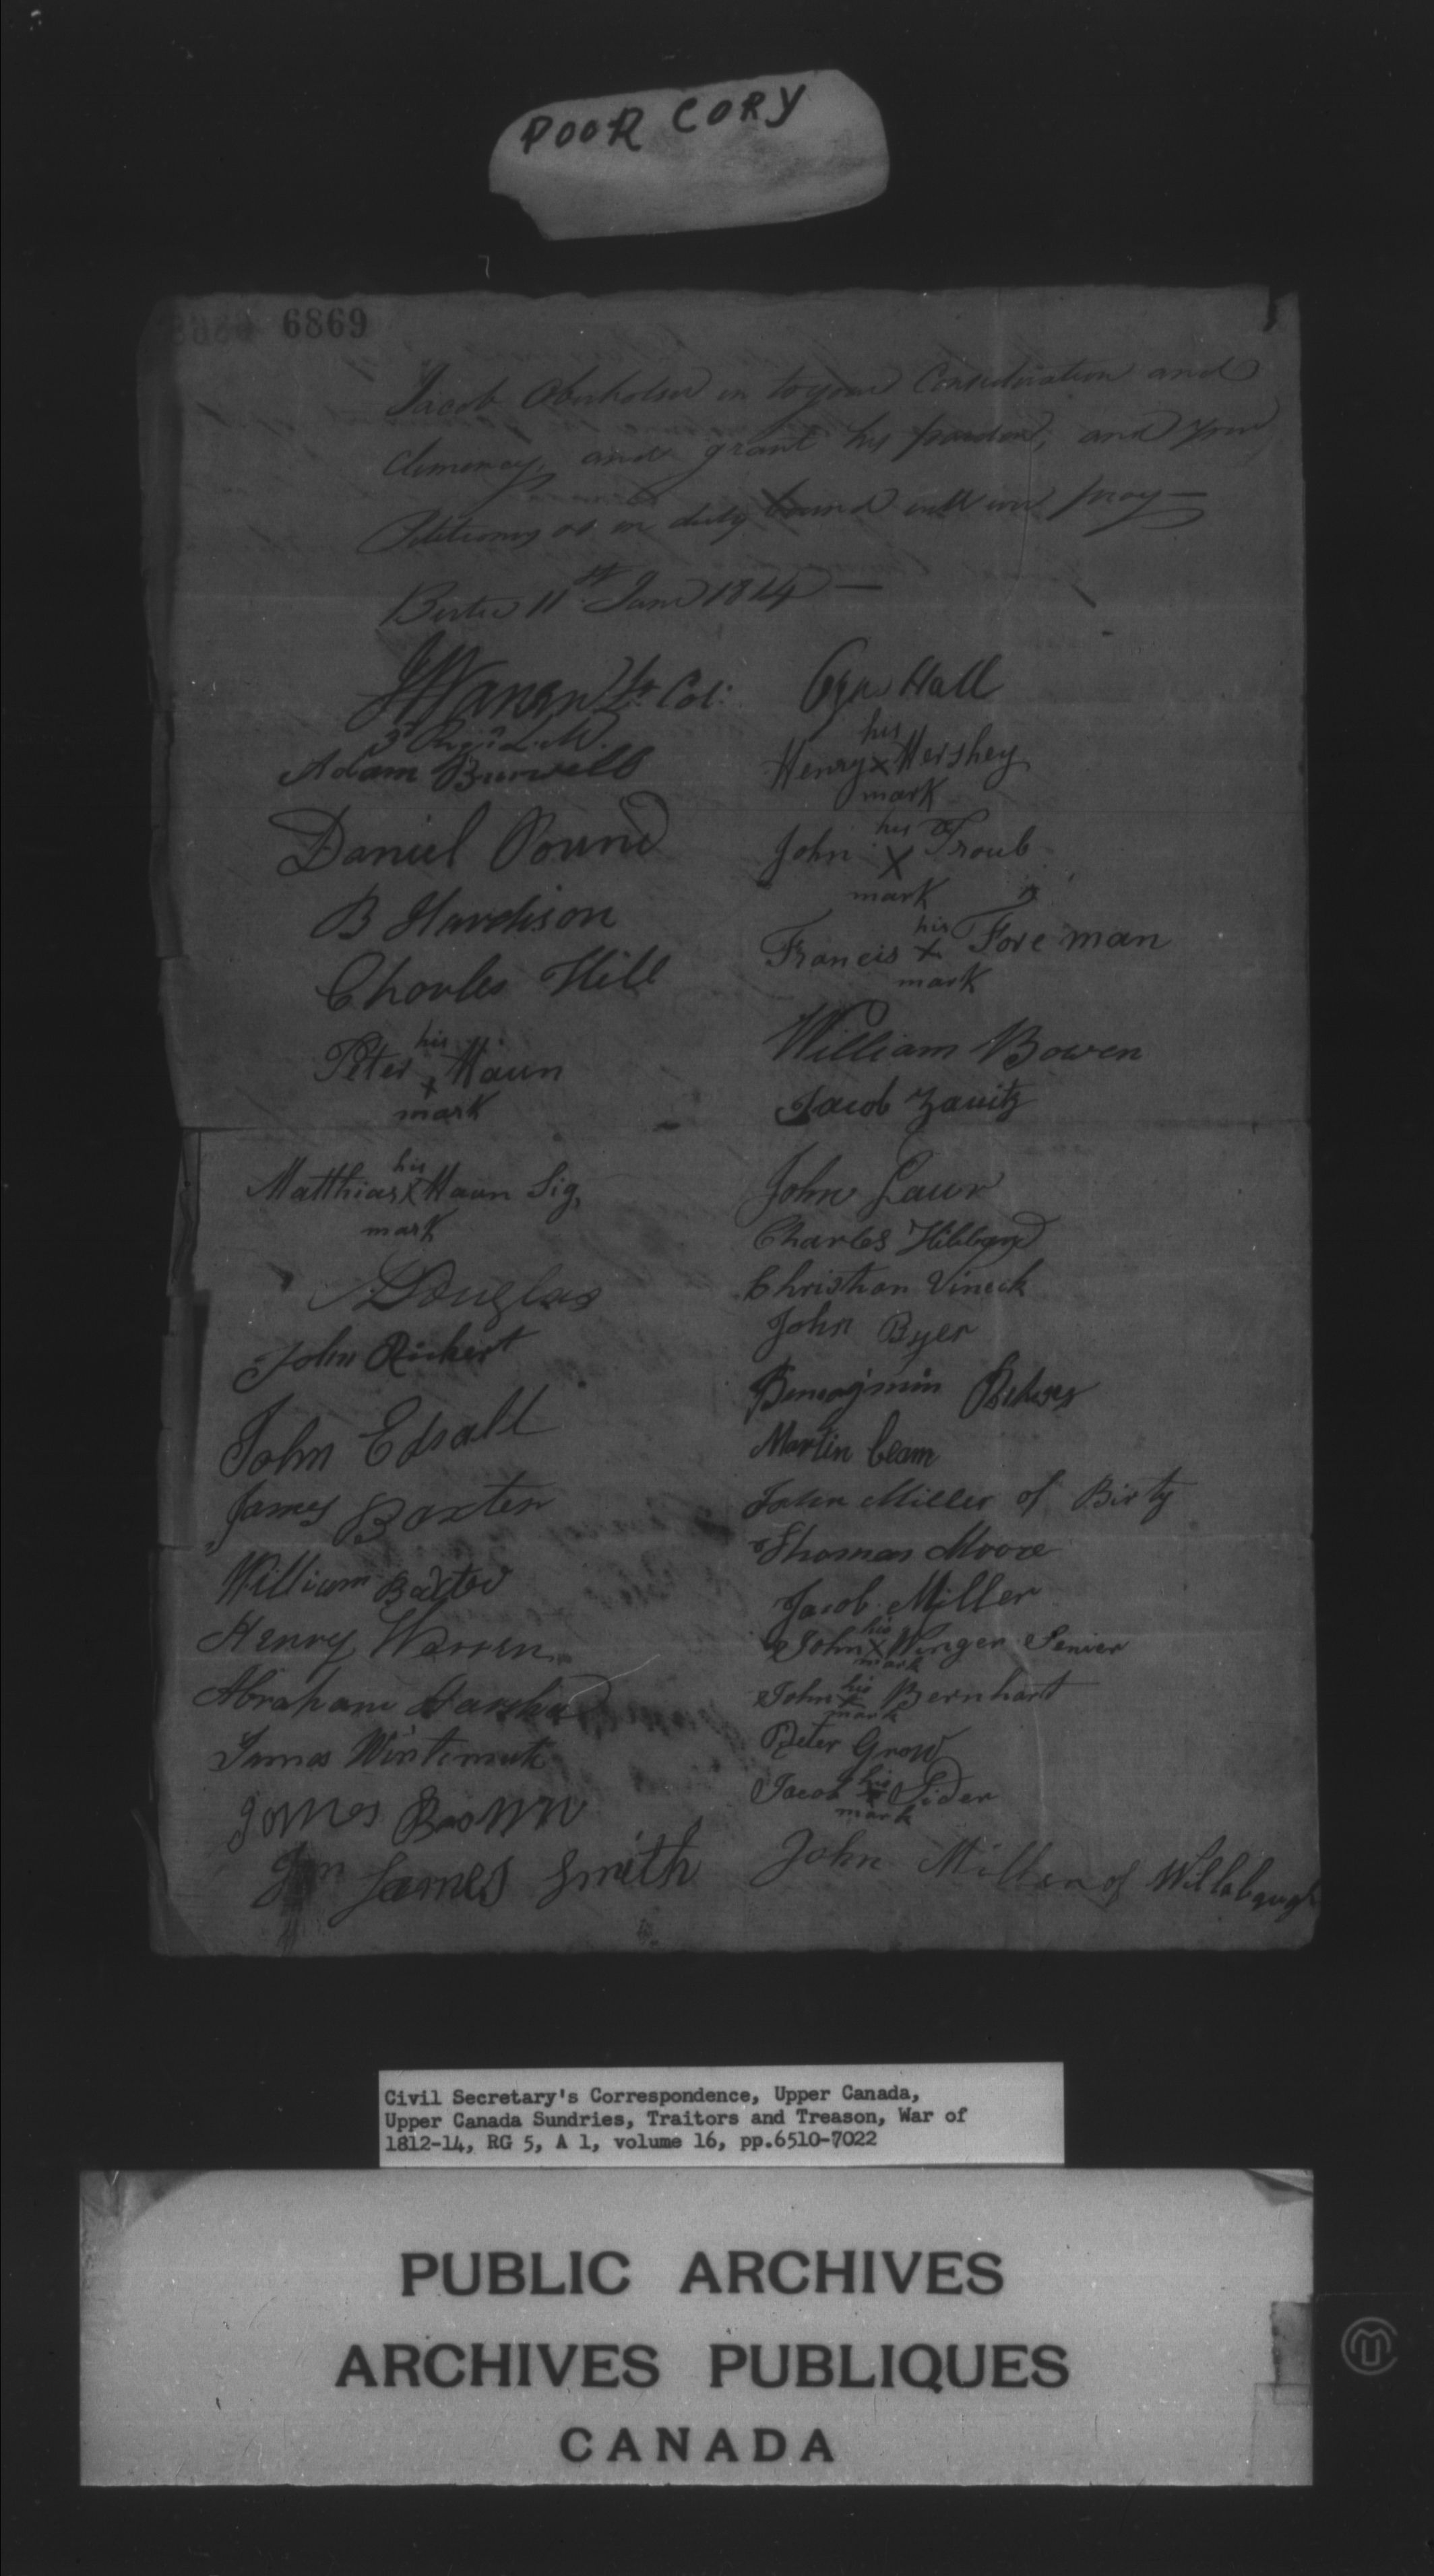 POOR COPY
6869
Jacob Oberholser in to your Consideration and
Clemency, and grant his pardon, and your
Petitioners as in duty bound will ever pray—
Bertie 11th June 1814—
J Warren Lt. Col:
3d Regt. L. M.
Adam Burwell
Daniel Pound
B Hardison
Charles Hill
his
Peter x Haun
mark
his
Matthias x Haun Sig,
mark
Douglas
John Rickert
John Edsall
James Baxter
William Baxter
Henry Warren
Abraham
James Wintemute
James Brown
James Smith
Hall
his
Henry x Hershey
mark
his
John x Troub
mark
his
Francis x Foreman
mark
William Bowen
Jacob Zavitz
John Laur
Charles Hibbard
Christian Vineck
John Byer
Benajmin
Martin beam
John Miller of Birty
Thomas Moore
Jacob Miller
his
John x Winger Senier
mark
his
John x Bernhart
mark
Peter Grow
his
Jacob x Sider
mark
John Miller of Willobaugh
Civil Secretary's Correspondence, Upper Canada,
Upper Canada Sundries, Traitors and Treason, War of
1812-14, RG 5, A 1, volume 16, pp.6510-7022
PUBLIC ARCHIVES
ARCHIVES PUBLIQUES
CANADA